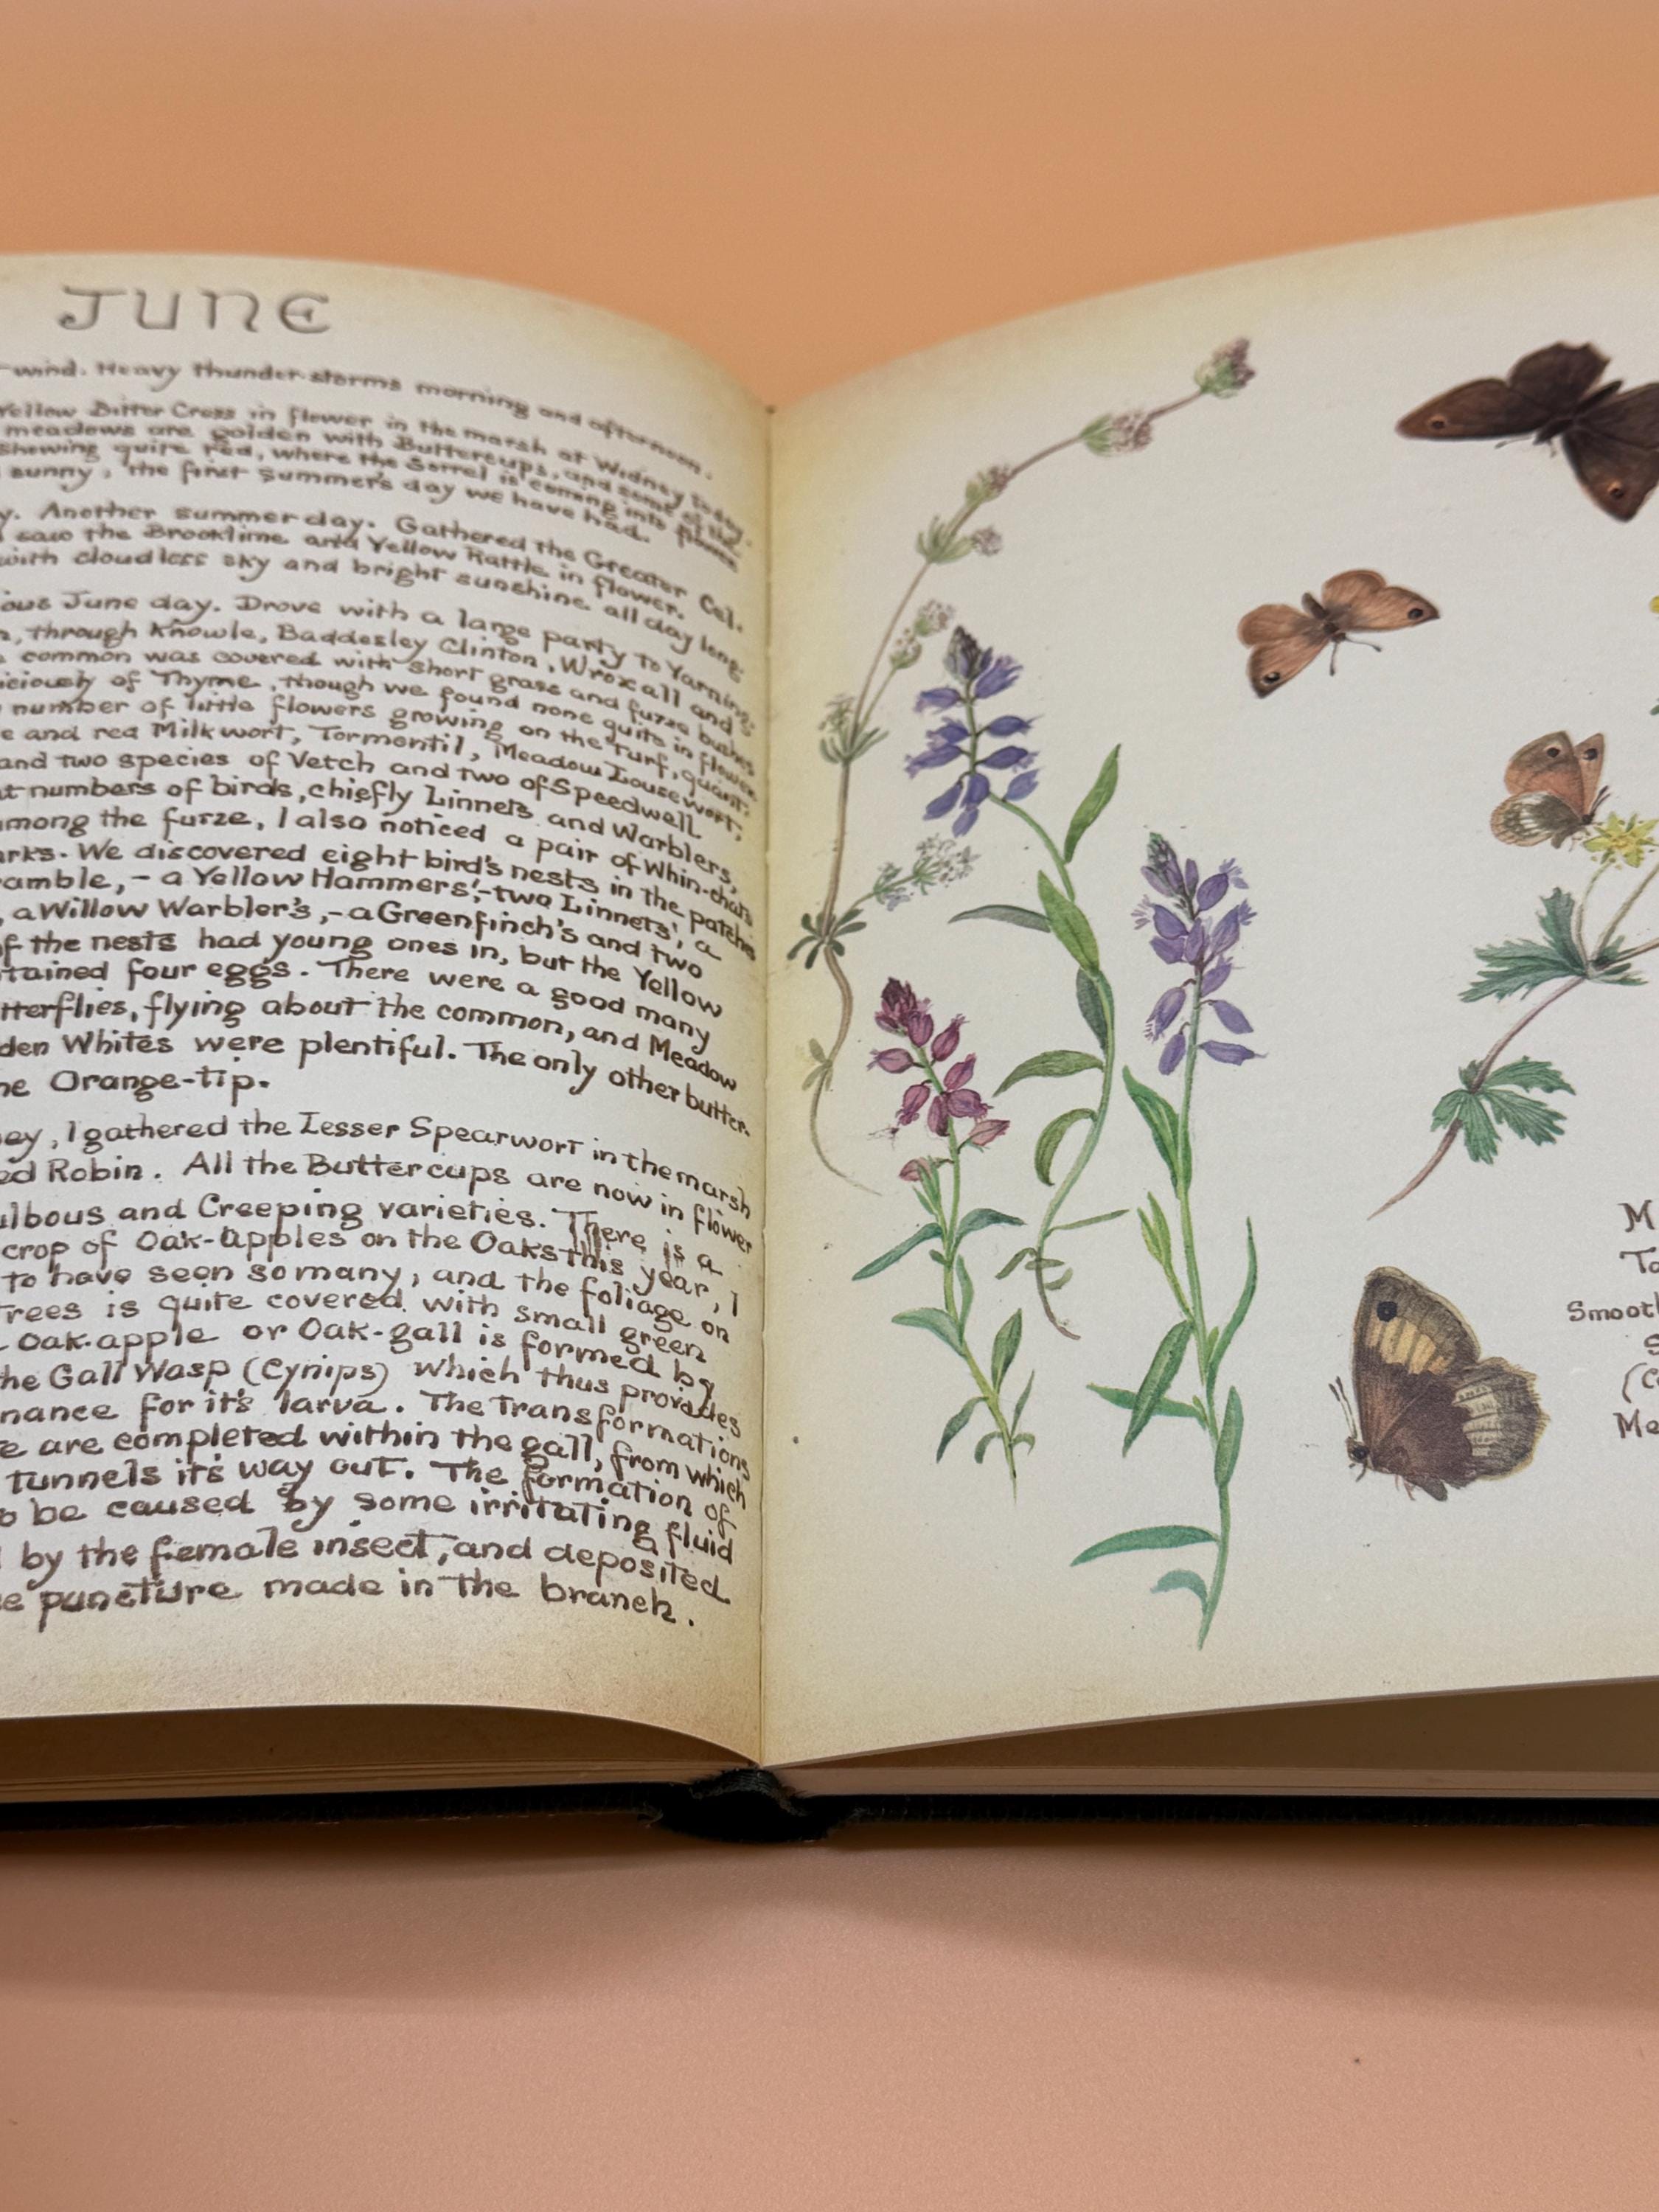 JUNE
wind. Heavy thunder-storms morning and afternoon.
Yellow Bitter Cress in flower in the marsh at Widney today,
meadows are golden with Buttercups, and some of the
showing quite red, where the Sorrel is coming into flower
sunny, the first Summer's day we have had.
y. Another summer day. Gathered the Greater Cel.
saw the Brooklime and Yellow Rattle in flower.
with cloudless sky and bright sunshine all day long.
ous June day. Drove with a large party to Yarning.
through Knowle, Baddesley Clinton, Wroxall and
common was covered with short grass and furze bushes
iciously of Thyme, though we found none quite in flower
number of little flowers growing on the turf, quant.
e and red Milkwort, Tormentil, Meadow Lousewort;
and two species of Vetch and two of Speedwell.
at numbers of birds, chiefly Linnets and Warblers,
among the furze, I also noticed a pair of Whin-chats
arks. We discovered eight bird's nests in the patches
ramble, - a Yellow Hammers', - two Linnets', a
, a Willow Warbler's, - a Greenfinch's and two
of the nests had young ones in, but the Yellow
tained four eggs. There were a good many
tterflies, flying about the common, and Meadow
den Whites were plentiful. The only other butter.
he Orange-tip.
ey, I gathered the Lesser Spearwort in the marsh
ed Robin. All the Buttercups are now in flower
ulbous and Creeping varieties. There is a
crop of Oak-Apples on the Oaks this year, I
to have seen so many, and the foliage on
Trees is quite covered with small green
Oak-apple or Oak-gall is formed by
the Gall Wasp (Cynips) which thus provides
nance for it's larva. The Transformations
e are completed within the gall, from which
tunnels it's way out. The formation of
o be caused by some irritating fluid
by the female insect, and deposited
e puncture made in the branch.
M
To
Smooth
S
(C
Me